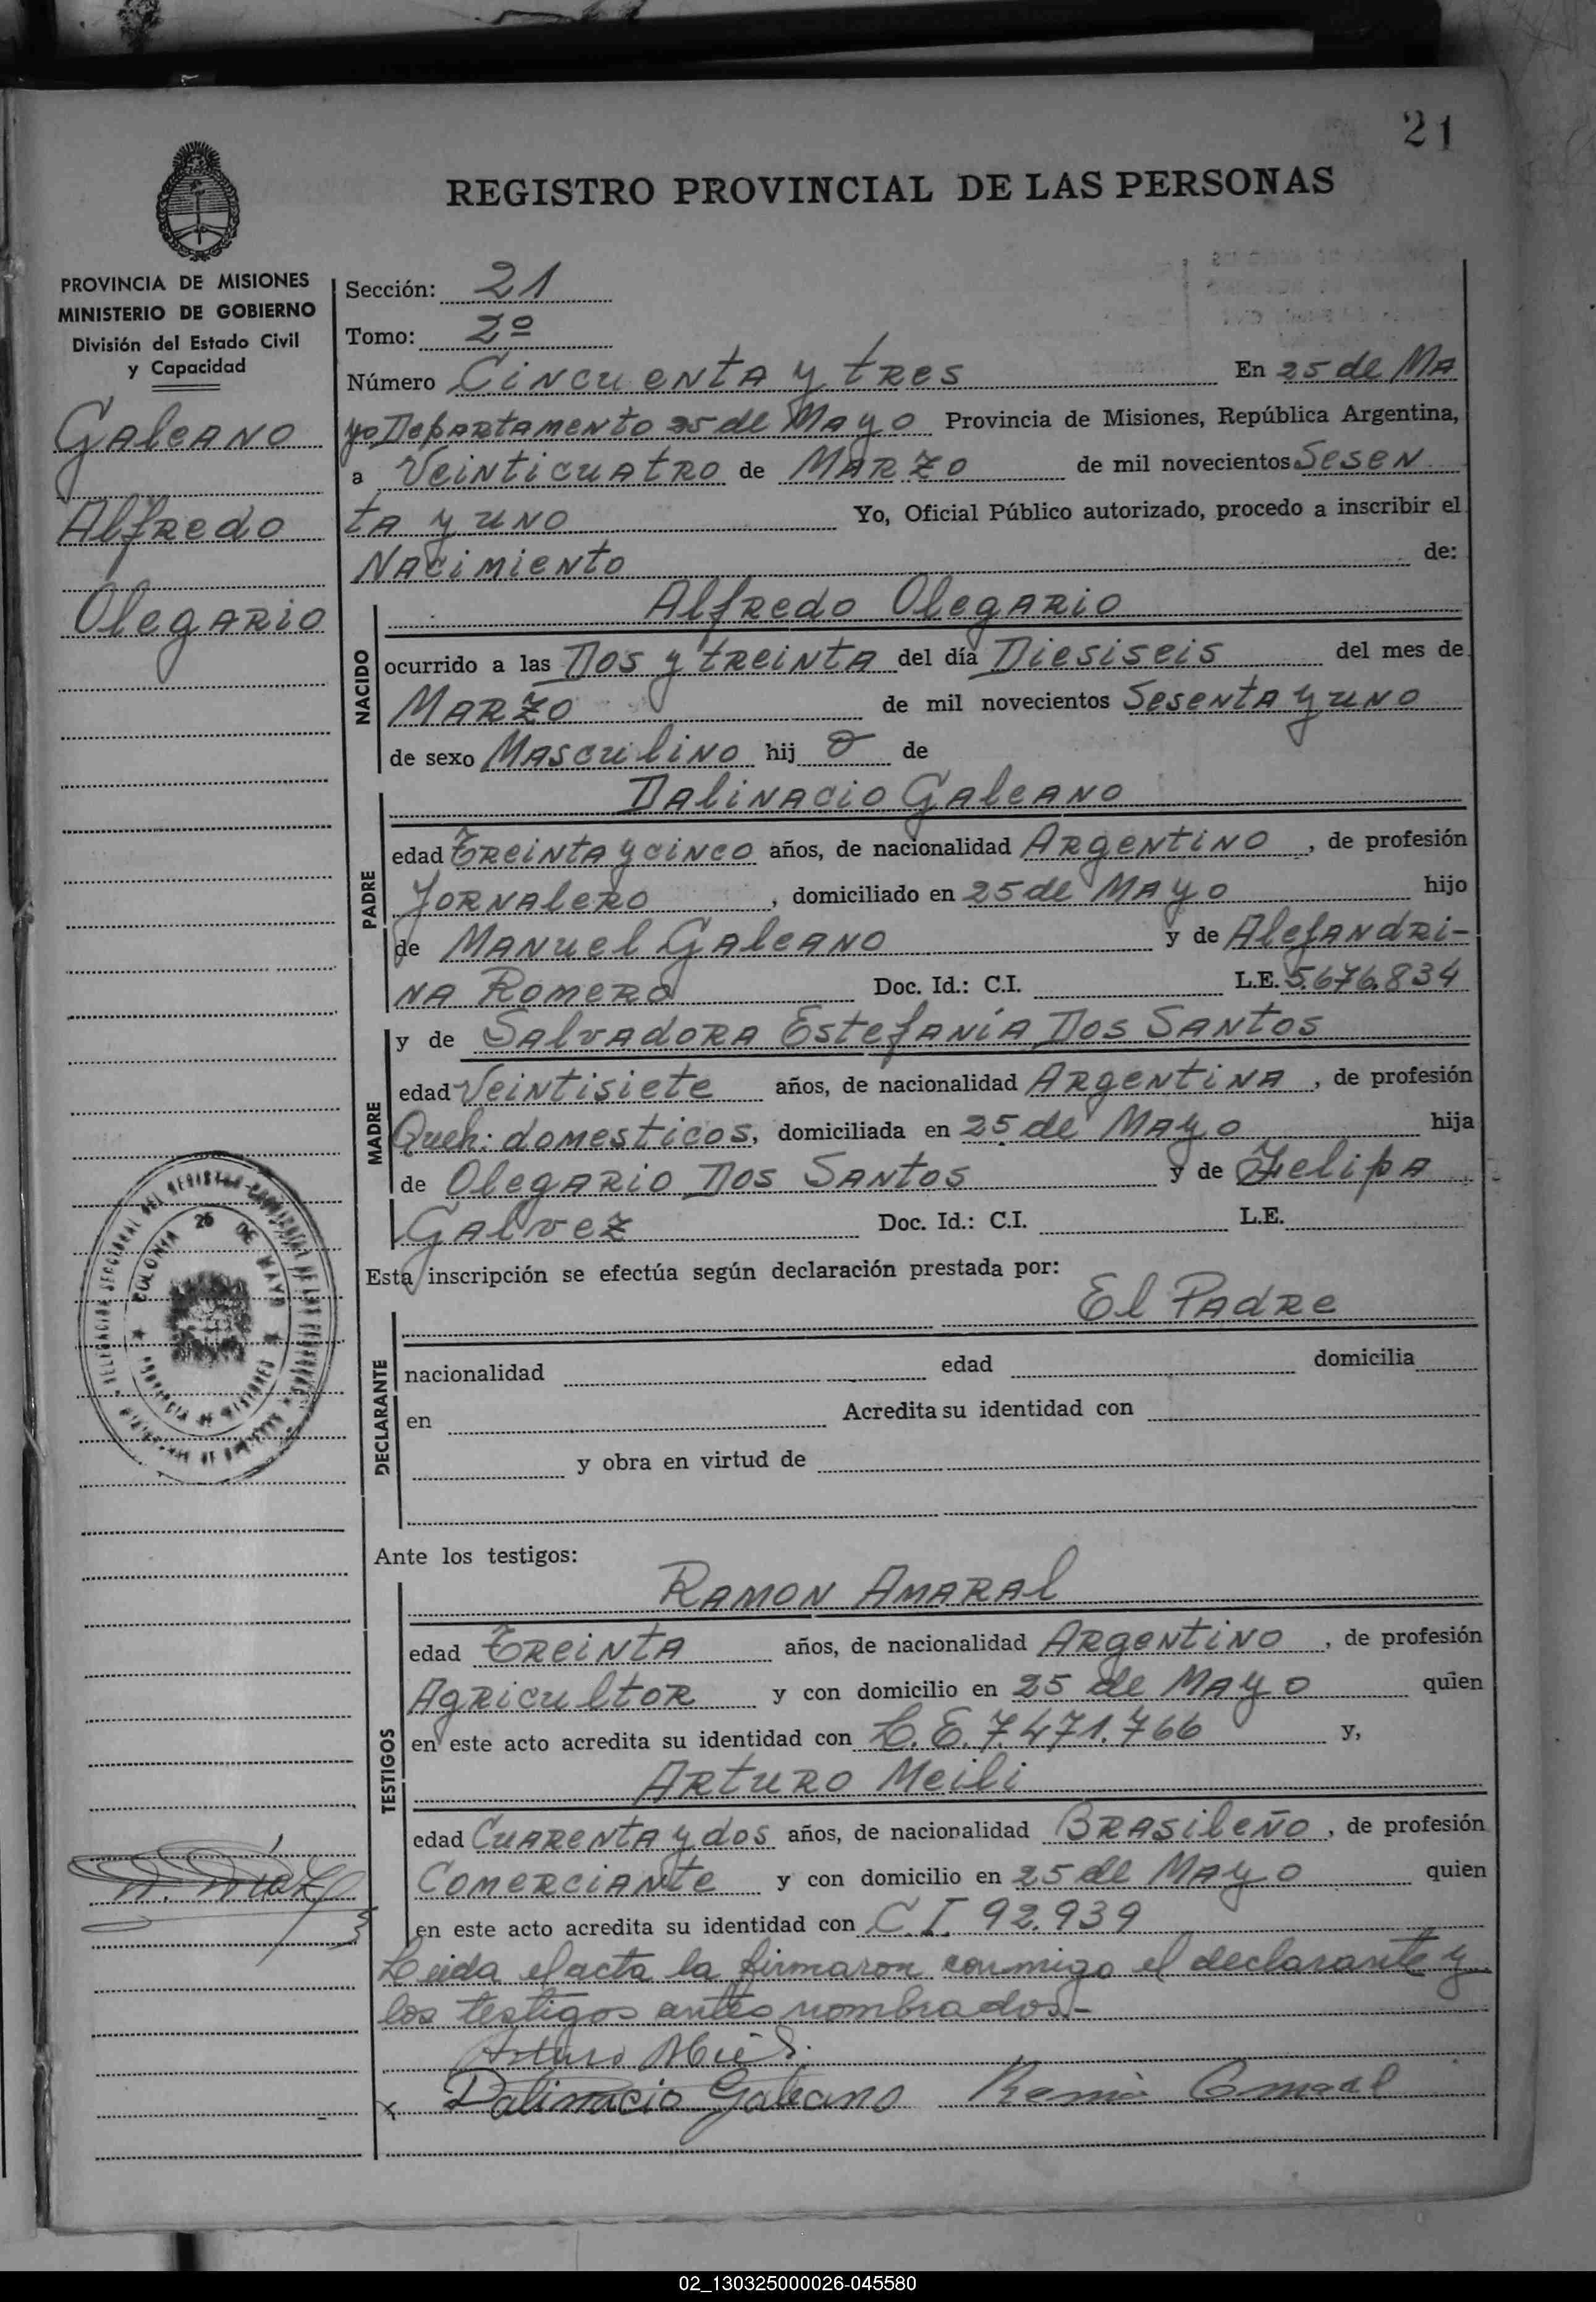 21
REGISTRO PROVINCIAL DE LAS PERSONAS
PROVINCIA DE MISIONES
MINISTERIO DE GOBIERNO
División del Estado Civil
y Capacidad
Galeano
Alfredo
Olegario
Sección: 21
Tomo: 2º
Número Cincuenta y tres En 25 de Ma
yo Departamento 25 de Mayo Provincia de Misiones, República Argentina,
a Veinticuatro de Marzo de mil novecientos Sesen
ta y uno Yo, Oficial Público autorizado, procedo a inscribir el
Nacimiento de:
Alfredo Olegario
NACIDO
ocurrido a las Dos y treinta del día Diesiseis del mes de
Marzo de mil novecientos Sesenta y uno
de sexo Masculino hij o de
Dalinacio Galeano
PADRE
edad Treinta y cinco años, de nacionalidad Argentino, de profesión
Jornalero, domiciliado en 25 de Mayo hijo
de Manuel Galeano y de Alejandri-
na Romero Doc. Id.: C.I. L.E. 5.676.834
y de Salvadora Estefanía Dos Santos
MADRE
edad Veintisiete años, de nacionalidad Argentina, de profesión
Queh: domesticos, domiciliada en 25 de Mayo hija
de Olegario Dos Santos y de Felipa
Galvez Doc. Id.: C.I. L.E.
Esta inscripción se efectúa según declaración prestada por:
El Padre
DECLARANTE
nacionalidad edad domicilia
en Acredita su identidad con
y obra en virtud de
COLONIA 25 DE MAYO
PROVINCIA DE MISIONES
Ante los testigos:
Ramon Amaral
TESTIGOS
edad Treinta años, de nacionalidad Argentino, de profesión
Agricultor y con domicilio en 25 de Mayo quien
en este acto acredita su identidad con L.E. 7.471.766 y,
Arturo Meili
edad Cuarenta y dos años, de nacionalidad Brasileño, de profesión
Comerciante y con domicilio en 25 de Mayo quien
en este acto acredita su identidad con C.I. 92.939
Leida el acta la firmaron conmigo el declarante y
los testigos antes nombrados.-
Arturo
x Dalinacio Galeano
02_130325000026-045580